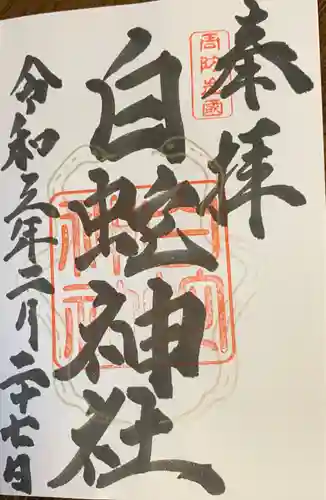 奉拝
周防岩國
白蛇神社
令和三年二月二十七日